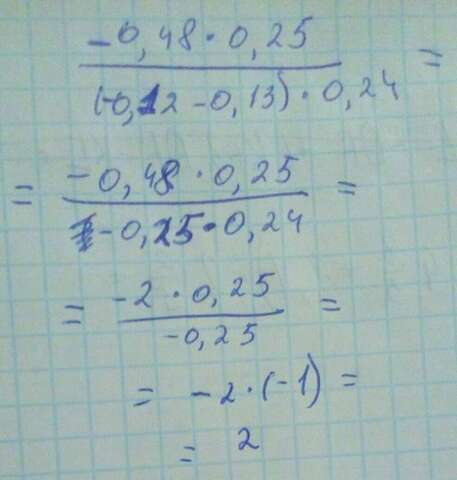 -0,48 · 0,25
(-0,12 - 0,13) · 0,24 =
= -0,48 · 0,25 =
-0,25 · 0,24
= -2 · 0,25 =
-0,25
= -2 · (-1) =
= 2